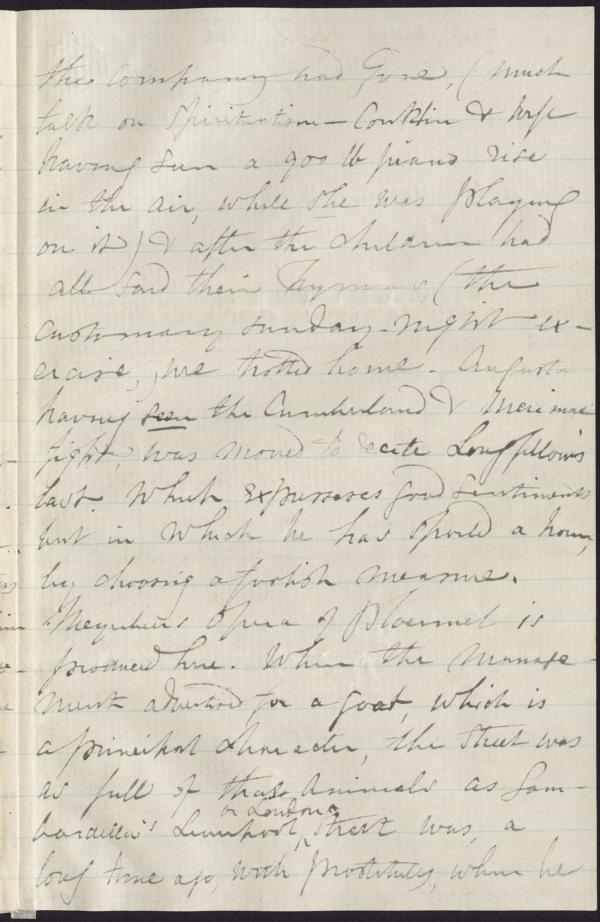 the company had gone, (much
talk on Spiritualism — Conklin & wife
having seen a 900 lb piano rise
in the air, while she was playing
on it) & after the children had
all said their hymns, (the
customary Sunday-night ex-
ercise,) we trotted home. Augusta
having seen the Cumberland & Merimac
fight, was moved to recite Longfellow's
last. Which expresses good sentiments
but in which he has spoiled a poem,
by choosing a foolish measure.
Meyerbeer's Opera of Ploermel is
produced here. When the manage-
ment advertised for a goat, which is
a principal character, the street was
as full of those animals as Gam-
bardella's Liverpool or London Street was, a
long time ago, with prostitutes, when he